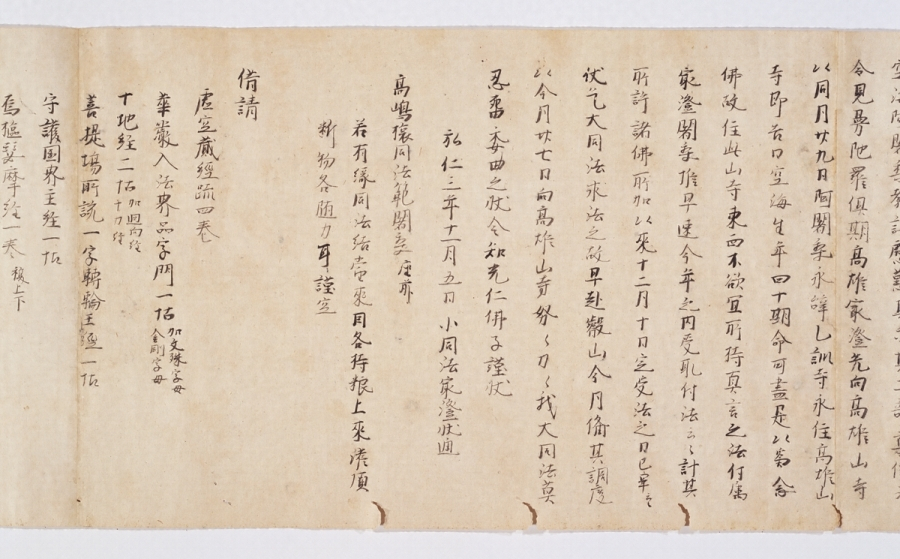 令見曼陀羅俱期高雄最澄先向高雄山寺
以同月廿九日阿闍梨永辞乙訓寺永住高雄山
寺即告曰空海生年四十期命可盡是以為念
佛故住此山寺東西不欲宜所持真言之法付属
最澄闍梨惟早速今年之内受取付法云々計其
所許諸佛所加以来十二月十日定受法之日已畢
伏乞大同法求法之故早赴叡山今月備其調度
以今月廿七日向高雄山寺努々力々我大同法莫
忍留委曲之状令知光仁佛子謹状
弘仁三年十一月五日 小同法最澄状通
高嶋濱同法範闍梨座前
若有縁同法結常来因各持粮上来灌頂
料物各随力耳謹空
借請
虚空蔵經疏四巻
華嚴入法界品字門一帖 加文殊字母 金剛字母
十地経二帖 加迴向経 十力経
菩提場所説一字轉輪王經一帖
守護国界主経一帖
烏樞瑟摩経一巻 複上下